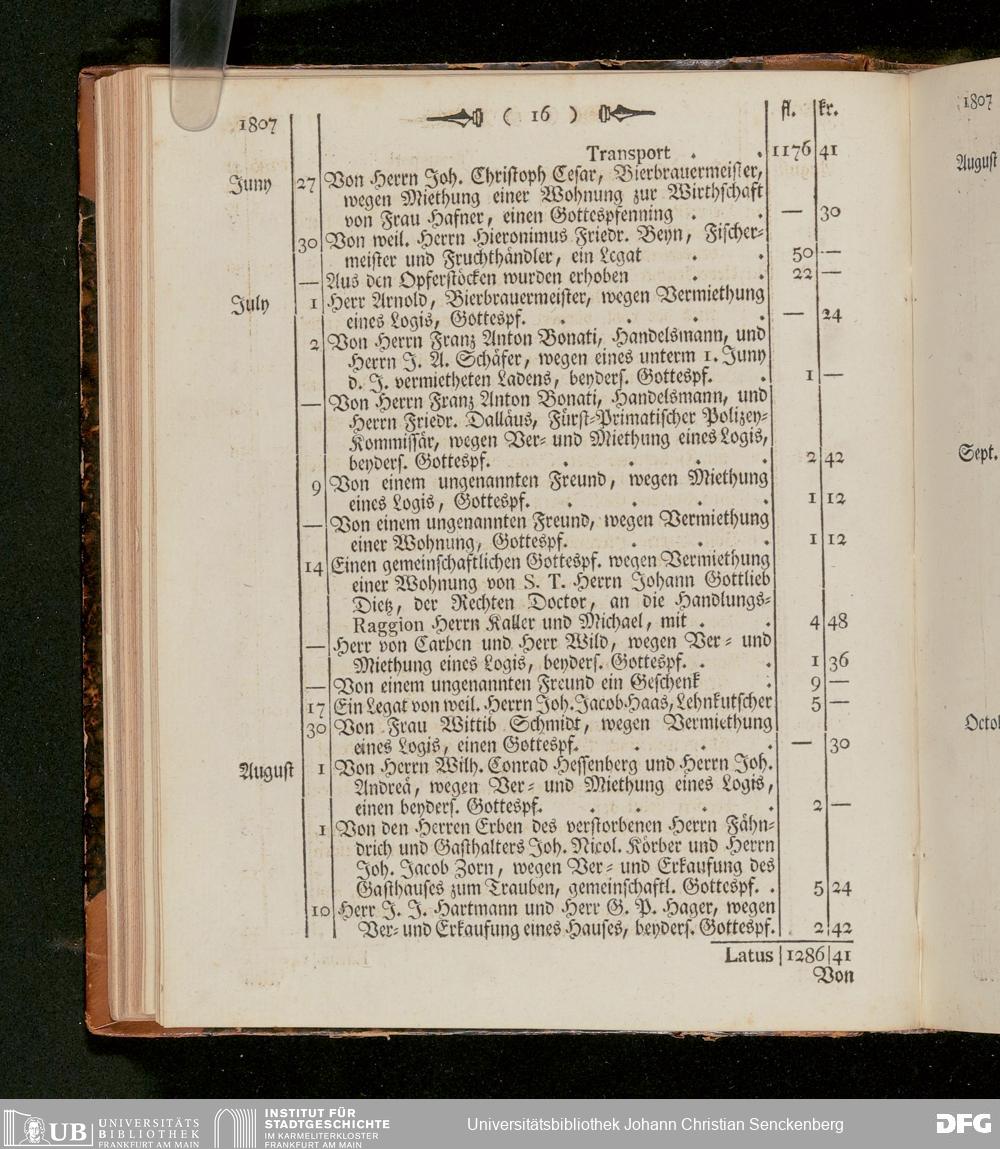 1807 ( 16 ) fl. kr.
Transport . . 1176 41
Juny 27 Von Herrn Joh. Christoph Cesar, Bierbrauermeister,
wegen Miethung einer Wohnung zur Wirthschaft
von Frau Hafner, einen Gottespfenning . . — 30
30 Von weil. Herrn Hieronimus Friedr. Beyn, Fischer-
meister und Fruchthändler, ein Legat . . 50 —
— Aus den Opferstöcken wurden erhoben . . 22 —
July 1 Herr Arnold, Bierbrauermeister, wegen Vermiethung
eines Logis, Gottespf. . . . . — 24
2 Von Herrn Franz Anton Bonati, Handelsmann, und
Herrn J. A. Schäfer, wegen eines unterm 1. Juny
d. J. vermietheten Ladens, beyders. Gottespf. . 1 —
— Von Herrn Franz Anton Bonati, Handelsmann, und
Herrn Friedr. Dalläus, Fürst-Primatischer Polizey-
Kommissär, wegen Ver- und Miethung eines Logis,
beyders. Gottespf. . . . . 2 42
9 Von einem ungenannten Freund, wegen Miethung
eines Logis, Gottespf. . . . . 1 12
— Von einem ungenannten Freund, wegen Vermiethung
einer Wohnung, Gottespf. . . . 1 12
14 Einen gemeinschaftlichen Gottespf. wegen Vermiethung
einer Wohnung von S. T. Herrn Johann Gottlieb
Dietz, der Rechten Doctor, an die Handlungs-
Raggion Herrn Kaller und Michael, mit . . 4 48
— Herr von Carben und Herr Wild, wegen Ver- und
Miethung eines Logis, beyders. Gottespf. . . 1 36
— Von einem ungenannten Freund ein Geschenk . 9 —
17 Ein Legat von weil. Herrn Joh. Jacob Haas, Lehnkutscher 5 —
30 Von Frau Wittib Schmidt, wegen Vermiethung
eines Logis, einen Gottespf. . . . — 30
August 1 Von Herrn Wilh. Conrad Hessenberg und Herrn Joh.
Andreä, wegen Ver- und Miethung eines Logis,
einen beyders. Gottespf. . . . . 2 —
1 Von den Herren Erben des verstorbenen Herrn Fähn-
drich und Gasthalters Joh. Nicol. Körber und Herrn
Joh. Jacob Zorn, wegen Ver- und Erkaufung des
Gasthauses zum Trauben, gemeinschaftl. Gottespf. . 5 24
10 Herr J. J. Hartmann und Herr G. P. Hager, wegen
Ver- und Erkaufung eines Hauses, beyders. Gottespf. 2 42
Latus 1286 41
Von
1807
August
Sept.
Octo
UB UNIVERSITÄTS
BIBLIOTHEK
FRANKFURT AM MAIN
INSTITUT FÜR
STADTGESCHICHTE
IM KARMELITERKLOSTER
FRANKFURT AM MAIN
Universitätsbibliothek Johann Christian Senckenberg
DFG